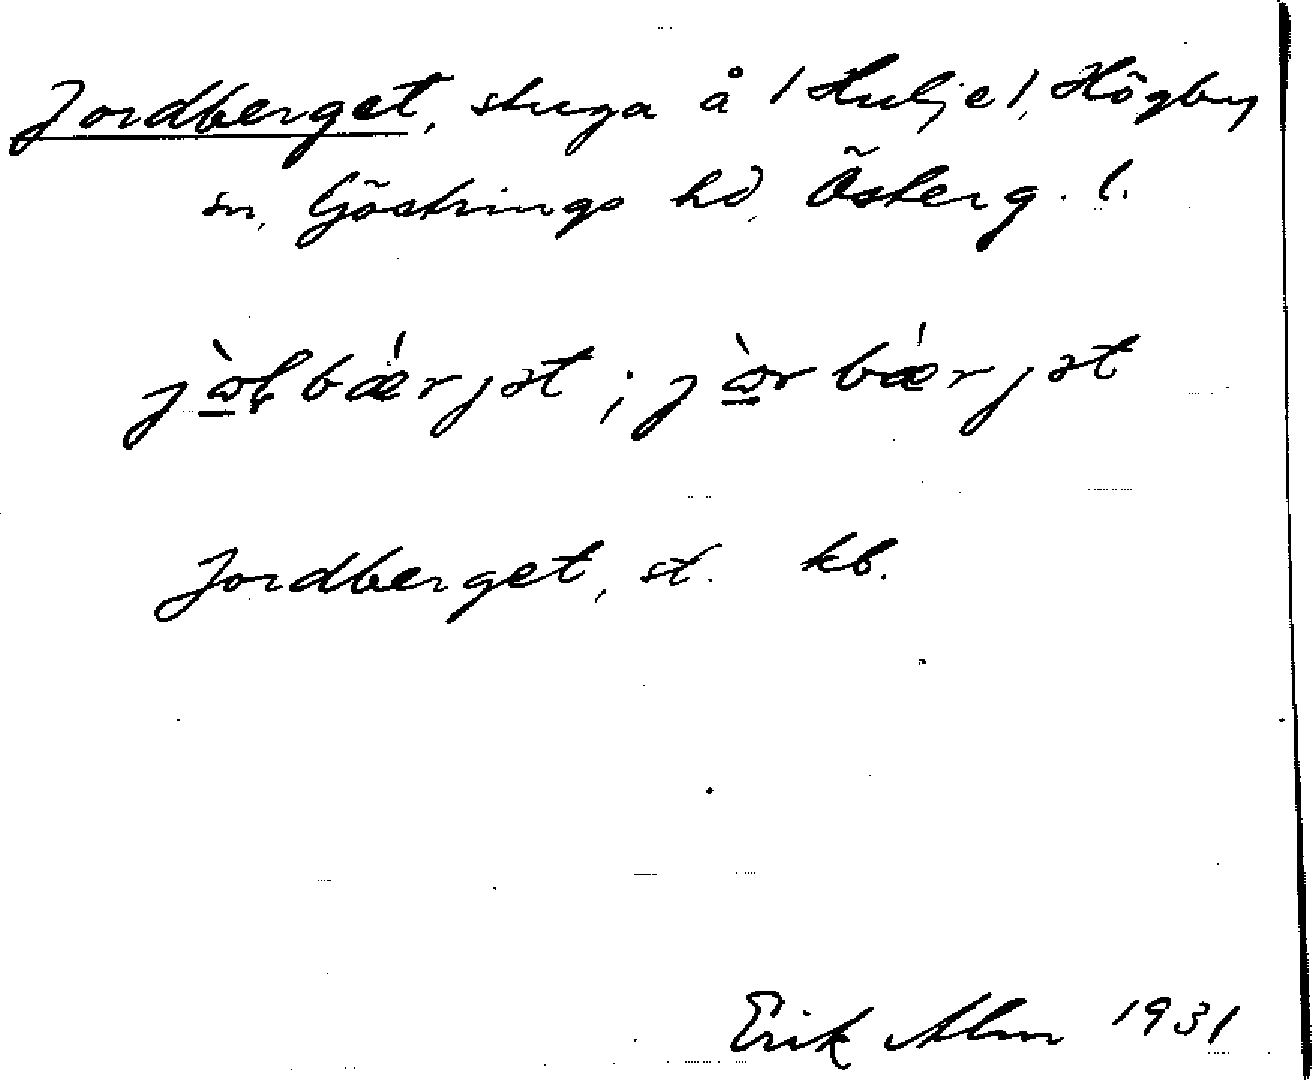 Jordberget, stuga å /Hulje/, Högby
sn, Göstrings hd, Österg. l.
jɷ̀ḷbǽrjət ; jɷ̀rbǽrjət
Jordberget, st. kb.
Erik Alm 1931